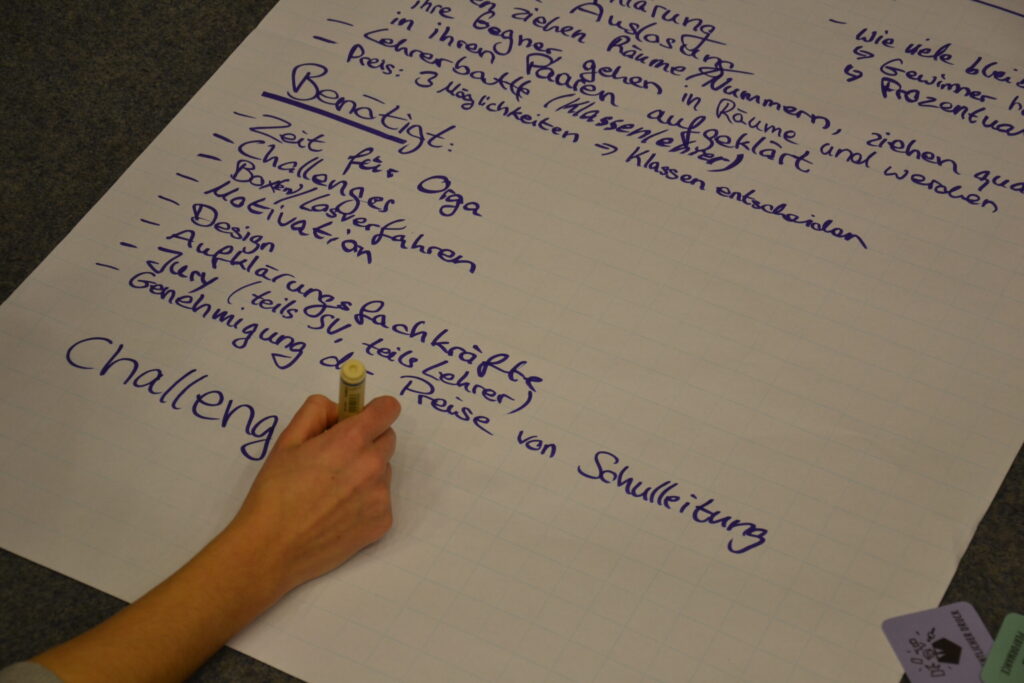 Auslosung
ziehen Räume/Nummern, ziehen
ihre Gegner, gehen in Räume und werden
in ihren Paaren aufgeklärt
- Lehrerbattle (Klassenlehrer)
- Preis: 3 Möglichkeiten → Klassen entscheiden
- wie viele
↳ Gewinner
↳
Benötigt:
- Zeit für Orga
- Challenges
- Box(en)/Losverfahren
- Motivation
- Design
- Aufklärungsfachkräfte
- Jury (teils SV, teils Lehrer)
- Genehmigung Preise von Schulleitung
Challeng